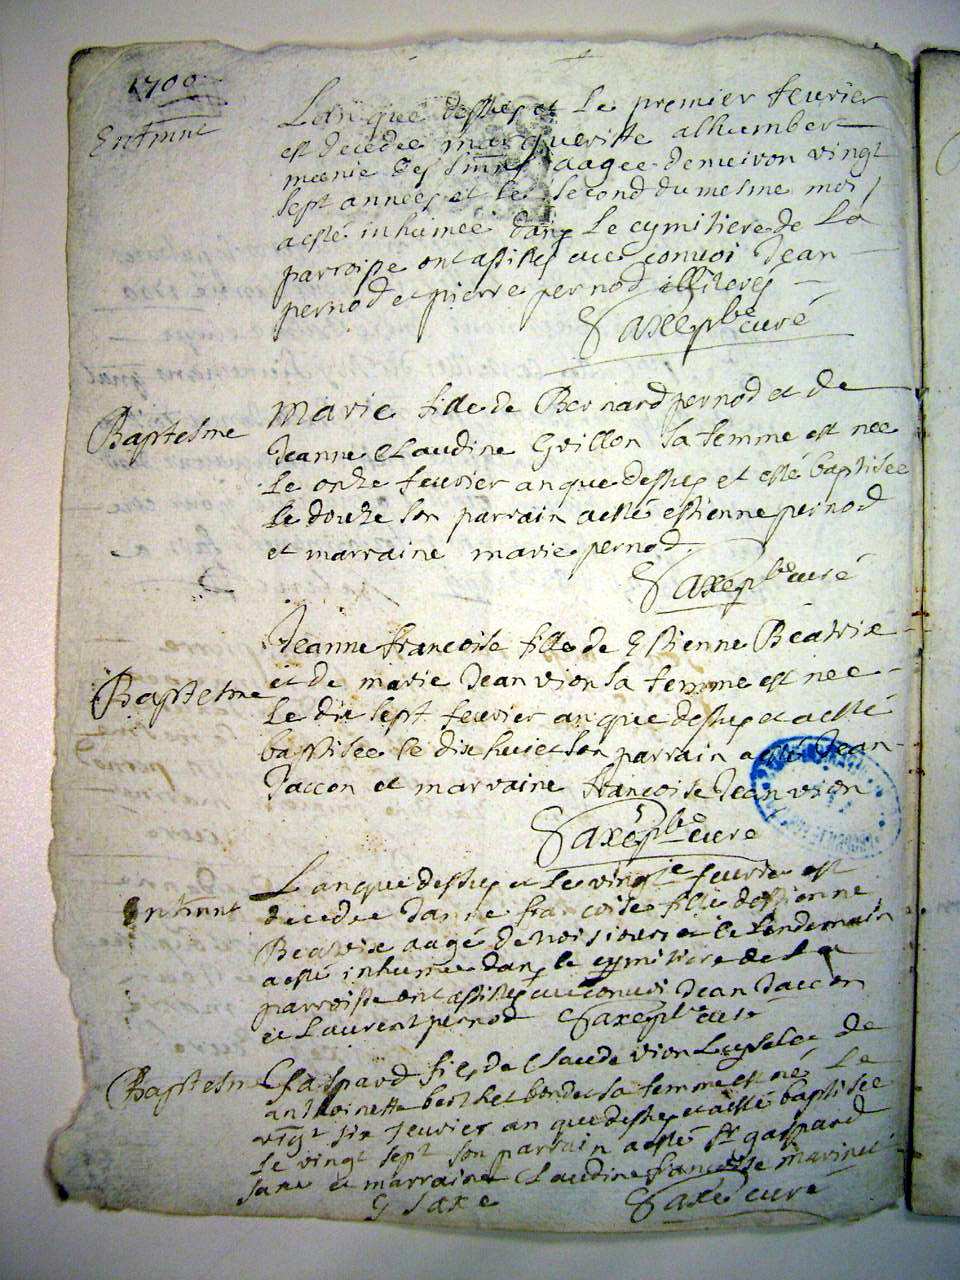 1700
Entrmnt
Lan que dessus et Le premier feurier
est decedeé margueritte alhumbert
aagée demeiron vingt
sept années et le second du mesme moi
a esté inhumeé dans Le cymitiere de La
parroisse ont assistés au convoi Jean
pernod et pierre pernod illiterés
Saxe pbr curé
Baptesme
Marie fille de Bernard pernod et de
Jeanne Claudine Guillon sa femme est neé
Le onze feurier an que dessus et esté baptiseé
le douze son parrain a esté estienne pernod
et marraine marie pernod
Saxe pbr curé
Baptesme
Jeanne francoise fille de Estienne Beatrix
et de marie Jeanvion sa femme est neé
Le dix sept feurier an que dessus et a esté
baptiseé le dix huiet son parrain a esté Jean
Jaccon et marraine francoise Jeanvion
Saxe pbr curé
Entrmnt
Lan que dessus et le vingtie feurier est
decedeé Janne francoise fille destienne
Beatrix aagé de trois iours et le lendemain
a esté inhumeé dans le cymitiere de La
parroisse ont assistés au convoi Jean Jaccon
et Laurent pernod Saxe pbr curé
Baptesme
Gaspard fils de Claude vion et de
anthoinette berthet bondet sa femme est né Le
vingt six feurier an que dessus et a esté baptisée
Le vingt sept son parrain a esté Sr gaspard
saxe et marraine Claudine francoise
G Saxe
Saxe curé